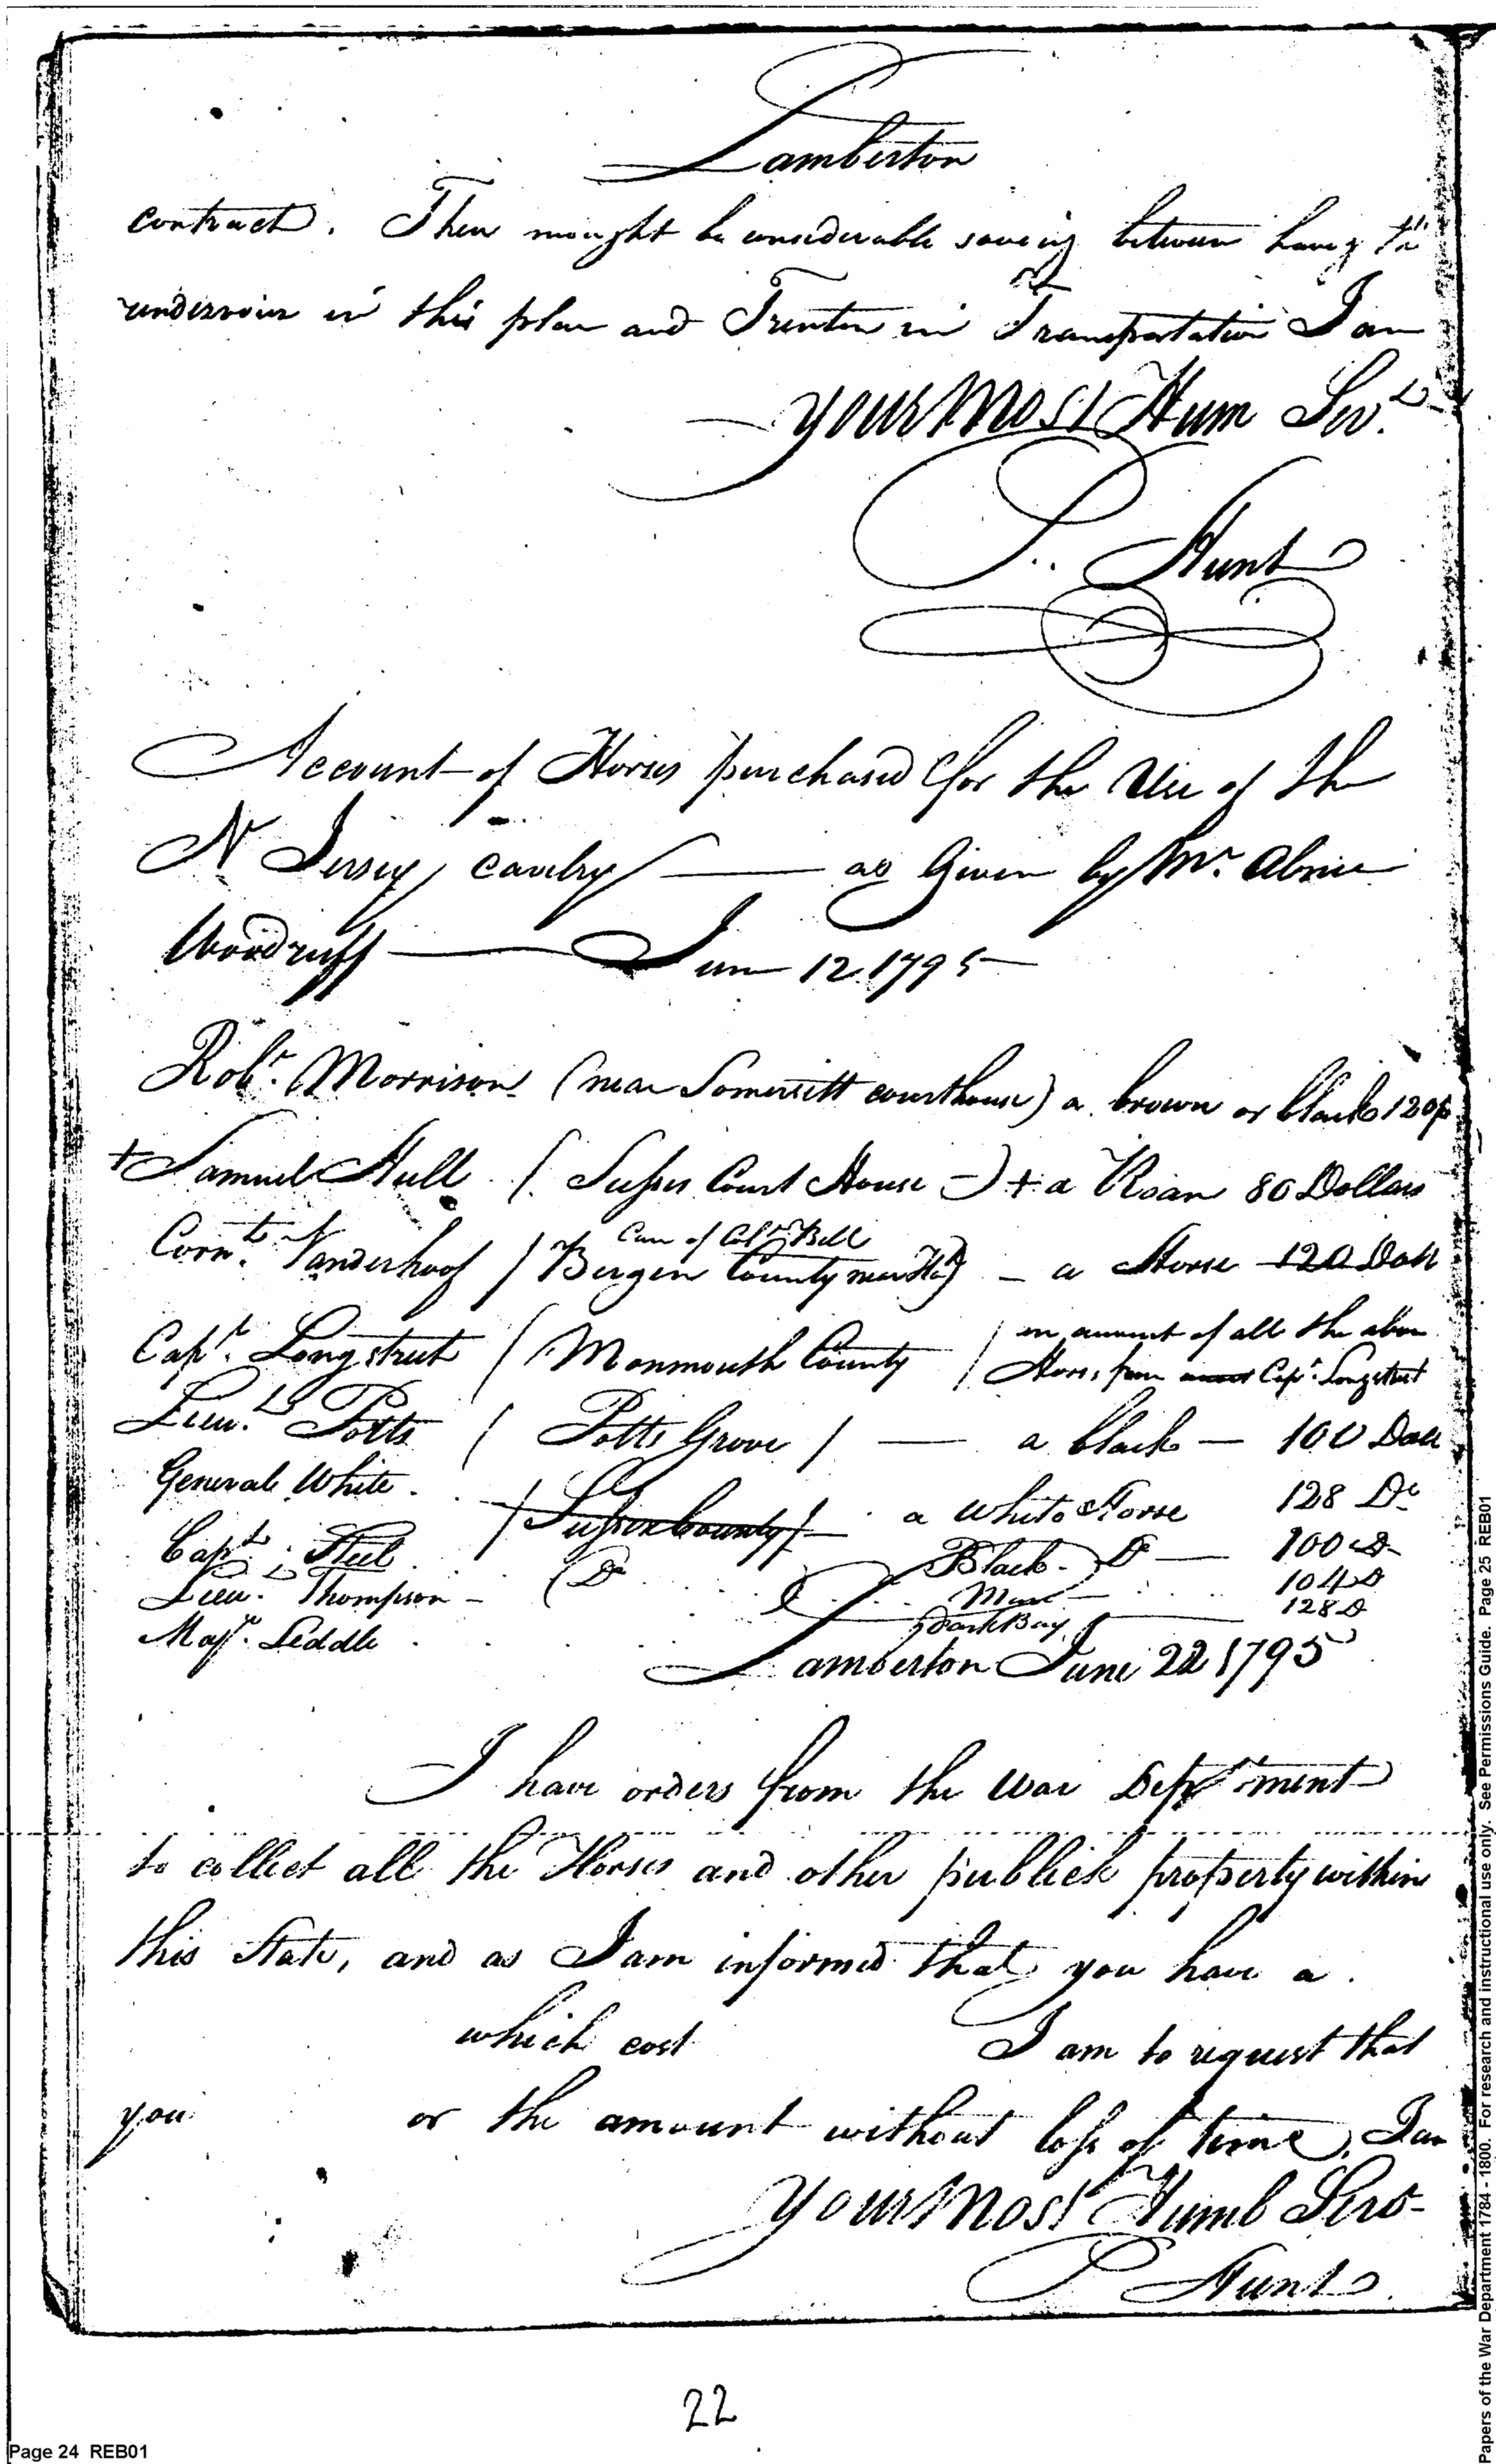 Lamberton
contract. There mought be considerable saveing between having the
undersoin in this place and Trenton in Transportation I am
your Most Hum Servt.
P. Hunt
Account of Horses purchased for the Use of the
N Jersey cavelry — as Given by Mr. Abner
Woodruff — June 12 1795
Robt. Morrison (near Somersitt courthouse) a brown or black 120
+ Samuel Hull (Sussex Court House —) + a Roan 80 Dollars
Care of Colo. Bell
Cornt. Vanderhoof (Bergen County near) — a Horse 120 Doll
Capt. Longstreet (Monmouth County) an amount of all the above
Horses from Capt. Longstreet
Lieut. Potts (Potts Grove) — a black — 100 Doll
General White. (Sussex County) — a white Horse 128 Do
Capt. Steel (Do Black Do — 100 D
Lieut. Thompson — Mare — 104 D
Majr. Leddle Dark Bay 128 D
Lamberton June 22 1795
I have orders from the War Department
to collect all the Horses and other publick property within
this State, and as I am informed that you have a
which cost I am to request that
you or the amount without loss of time, I am
your Most Humb Serv
P Hunt
22
Page 24 REB01
Papers of the War Department 1784 - 1800. For research and instructional use only. See Permissions Guide. Page 25 REB01